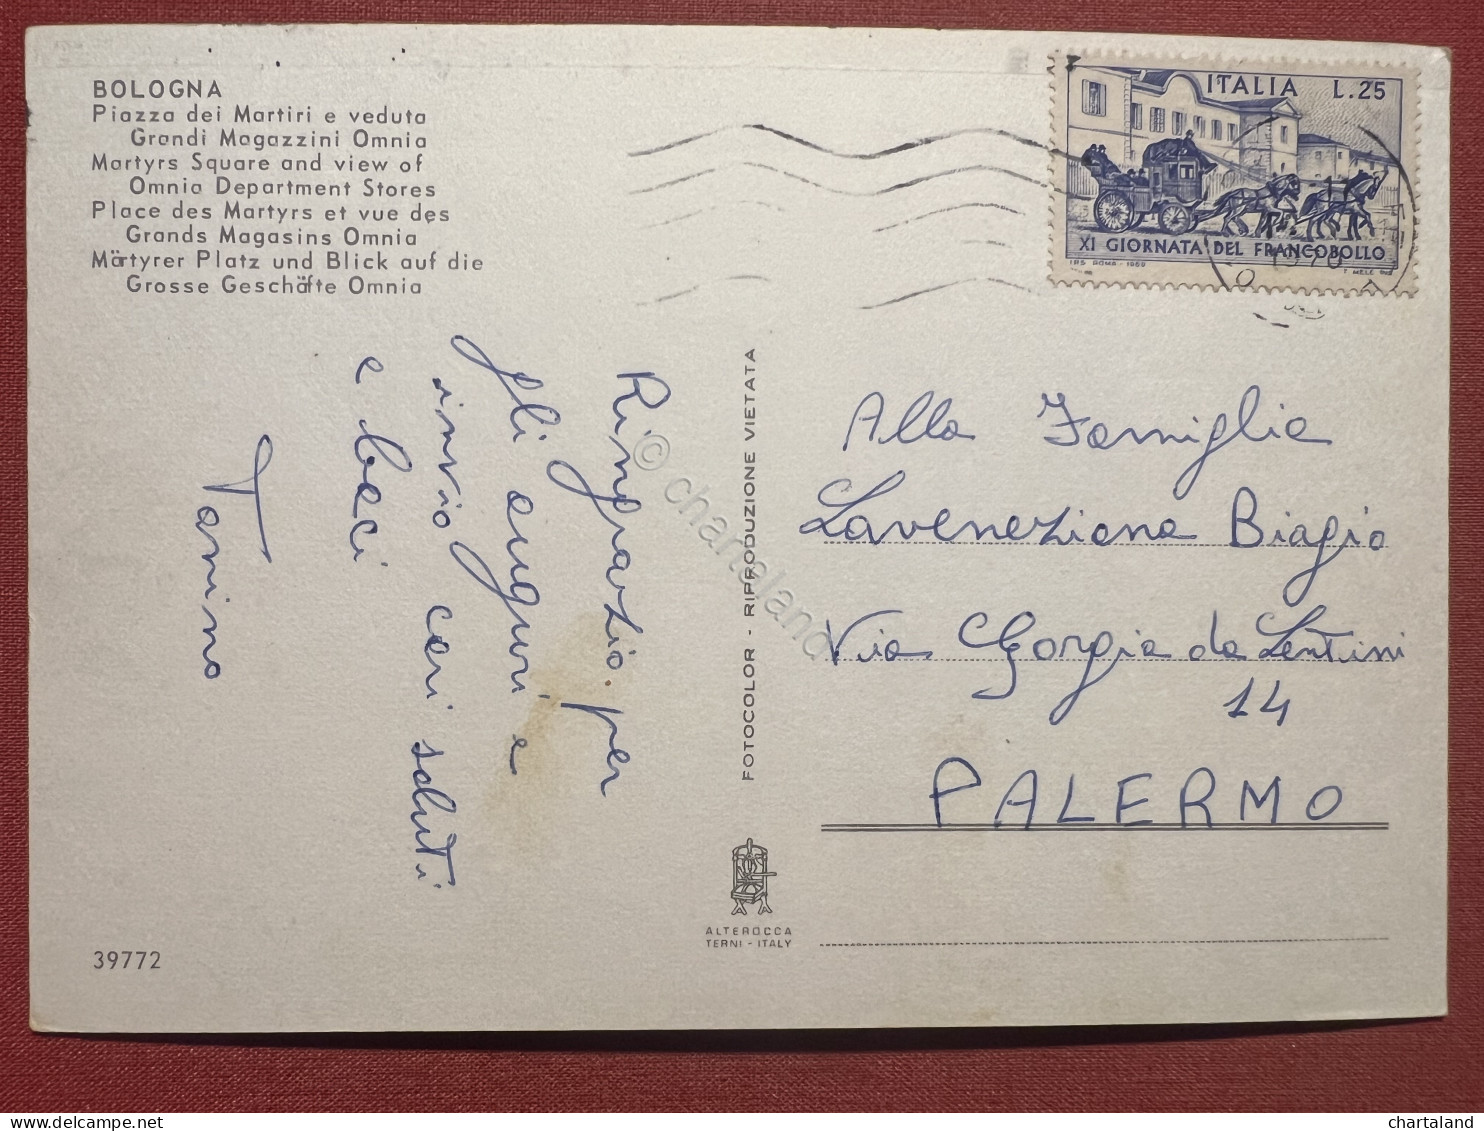 BOLOGNA
Piazza dei Martiri e veduta
Grandi Magazzini Omnia
Martyrs Square and view of
Omnia Department Stores
Place des Martyrs et vue des
Grands Magasins Omnia
Märtyrer Platz und Blick auf die
Grosse Geschäfte Omnia
ITALIA L.25
XI GIORNATA DEL FRANCOBOLLO
I.P.S. ROMA - 1969
Ringrazio per
gli auguri e
invio cari saluti
e baci
Tanino
FOTOCOLOR - RIPRODUZIONE VIETATA
Alla Famiglia
Laveneziana Biagio
Via Gorgia da Lentini
14
PALERMO
ALTEROCCA
TERNI - ITALY
39772
© chartaland
chartaland